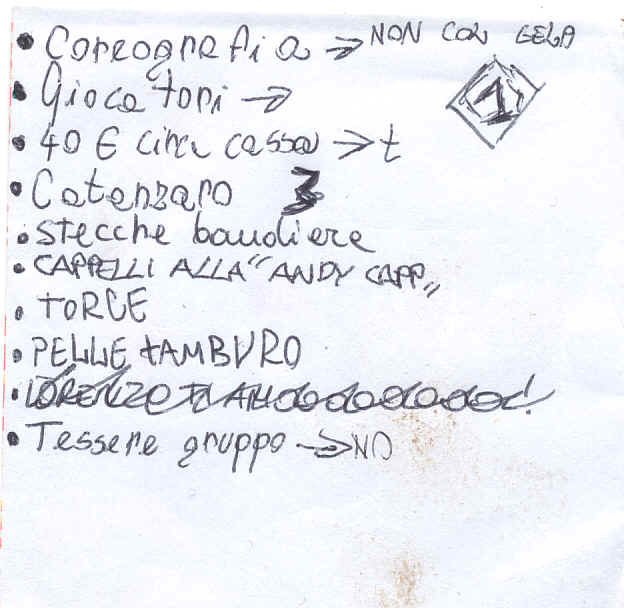 • Coreografia → NON CON GELA
1
• Giocatori →
• 40 € circa cassa → t
• Catanzaro 3
• stecche bandiere
• CAPPELLI ALLA "ANDY CAPP"
• TORCE
• PELLE TAMBURO
• LORENZO TI AMOOOOOOOO!
• Tessere gruppo → NO